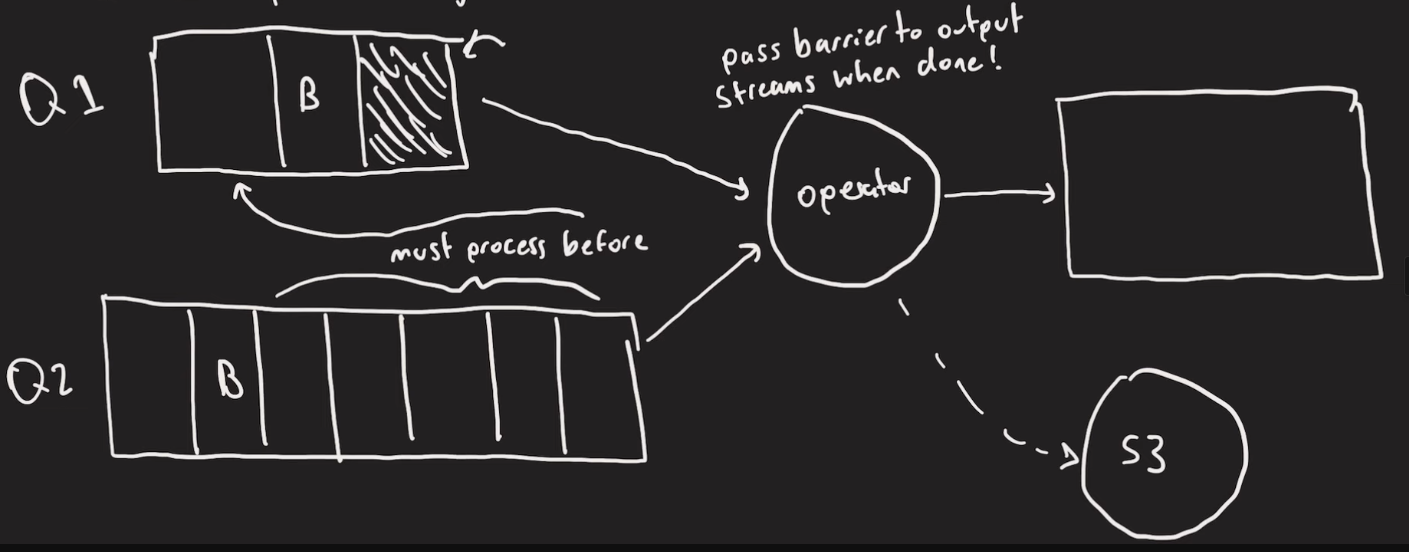 pass barrier to output
streams when done!
Q1
B
operator
must process before
Q2
B
S3